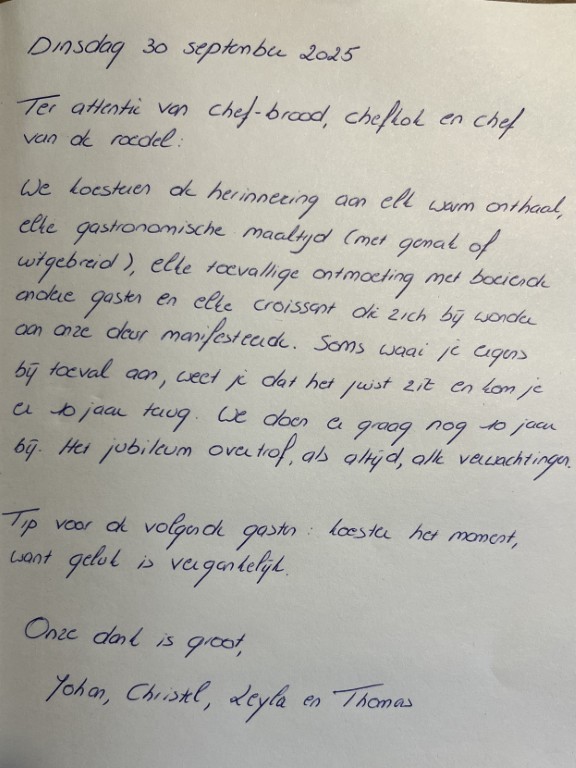 Dinsdag 30 september 2025
Ter attentie van chef-brood, chefkok en chef
van de roedel:
We koesteren de herinnering aan elk warm onthaal,
elke gastronomische maaltijd (met gemak of
uitgebreid), elke toevallige ontmoeting met boeiende
andere gasten en elke croissant die zich bij wonder
aan onze deur manifesteerde. Soms waai je ergens
bij toeval aan, weet je dat het juist zit en kom je
er 10 jaar terug. We doen er graag nog 10 jaar
bij. Het jubileum overtrof, als altijd, alle verwachtingen.
Tip voor de volgende gasten: koester het moment,
want geluk is vergankelijk.
Onze dank is groot,
Yohan, Christel, Leyla en Thomas